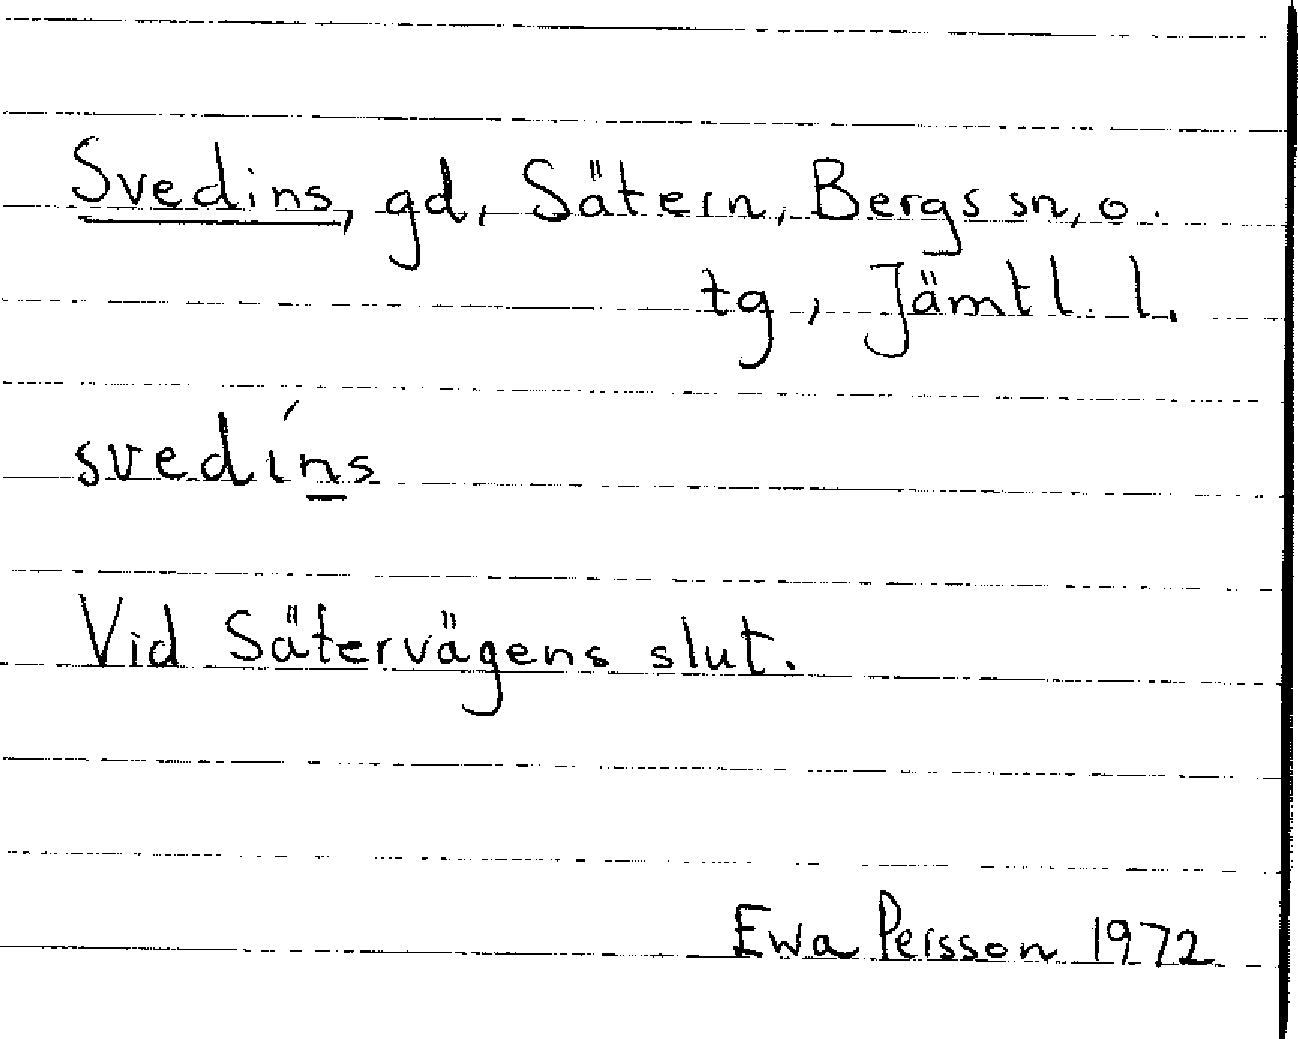 Svedins, gd, Sätern, Bergs sn, o.
tg, Jämtl. l.
svedíns
Vid Sätervägens slut.
Ewa Persson 1972